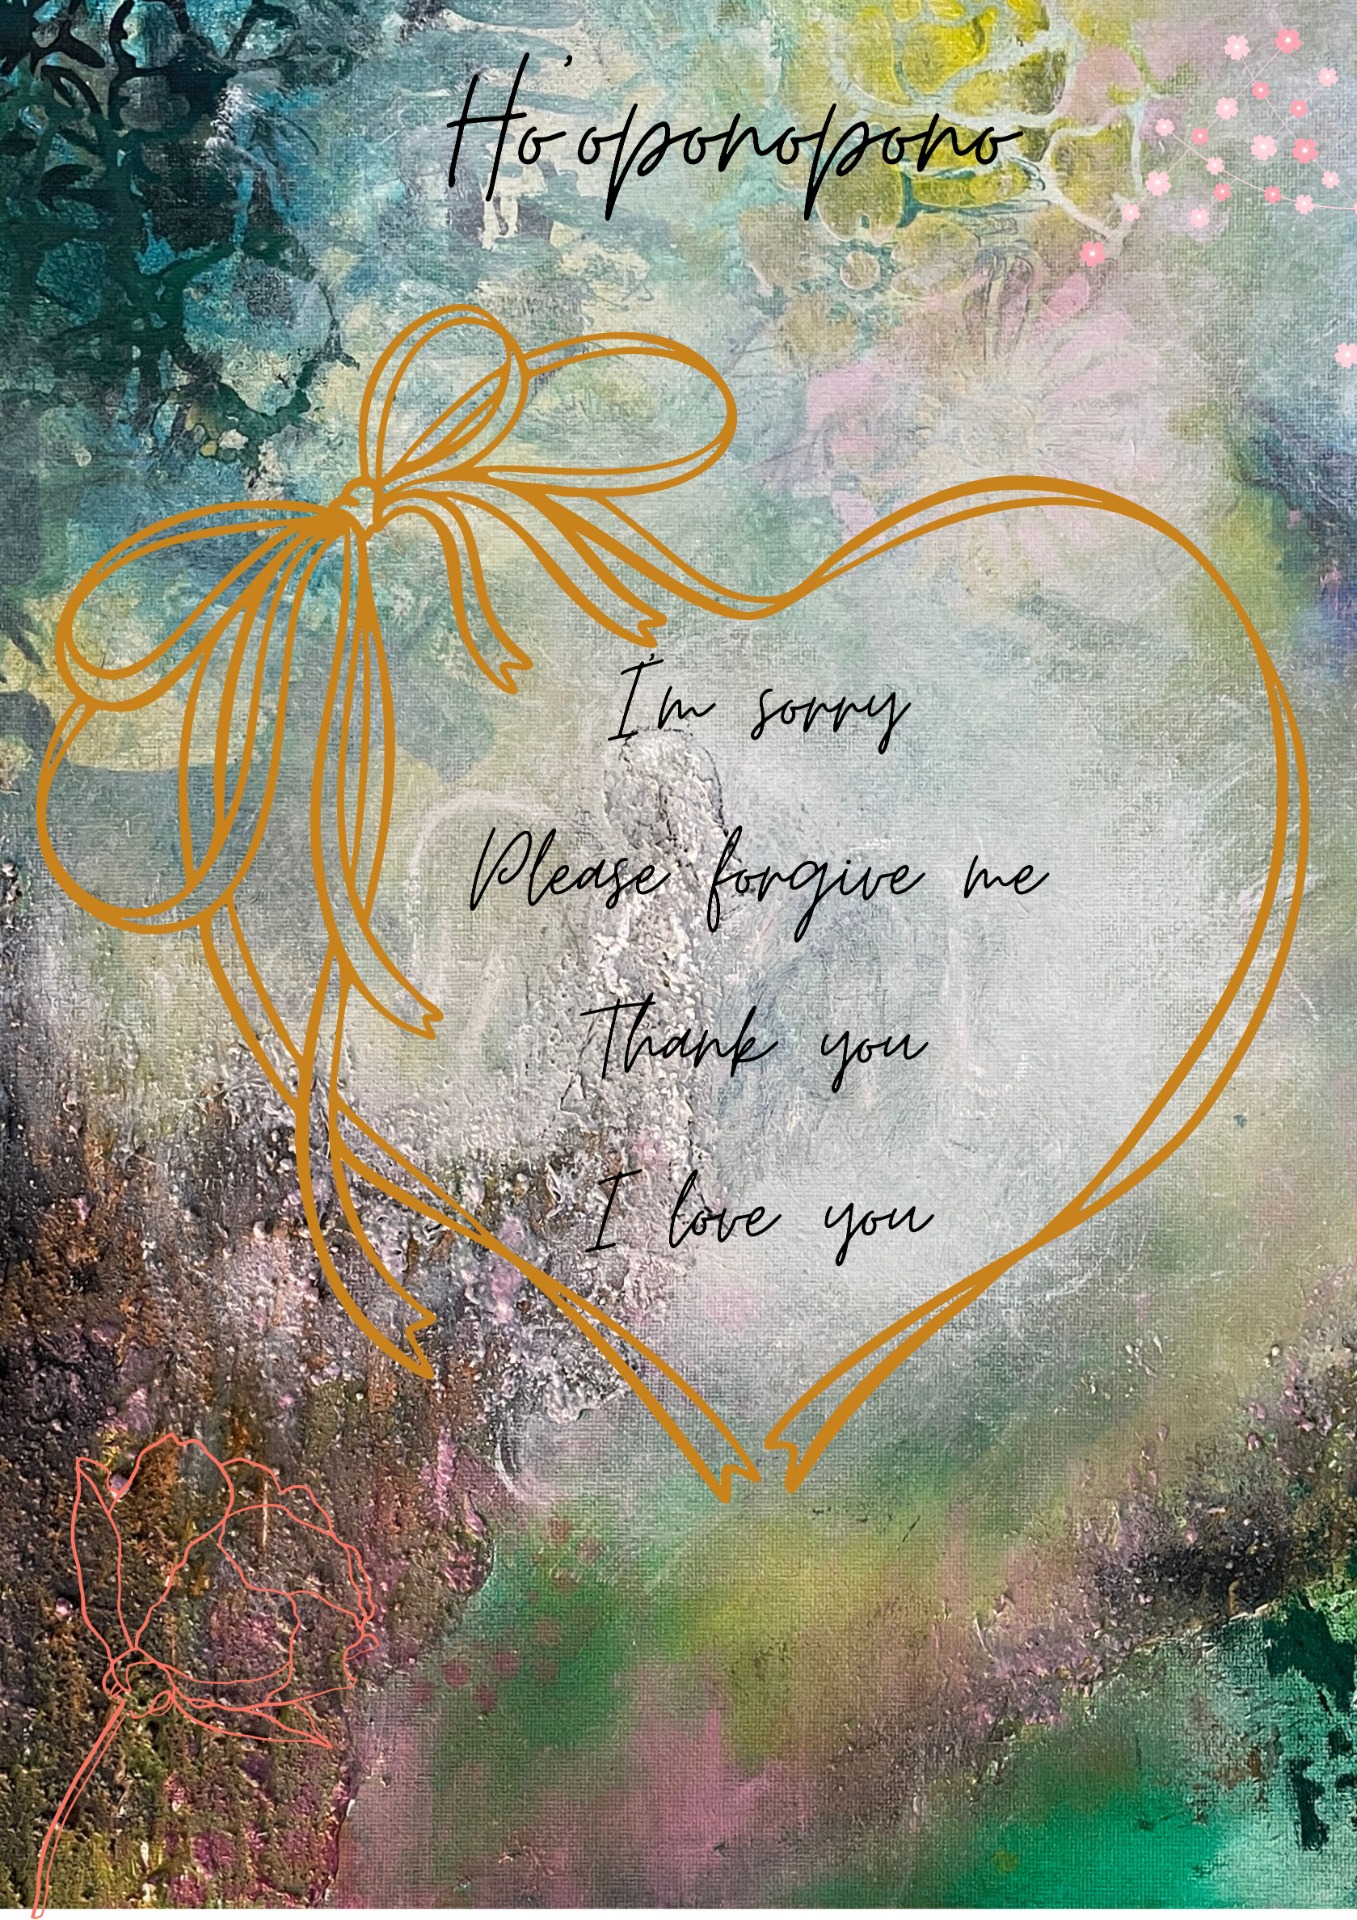 Ho'oponopono
I'm sorry
Please forgive me
Thank you
I love you